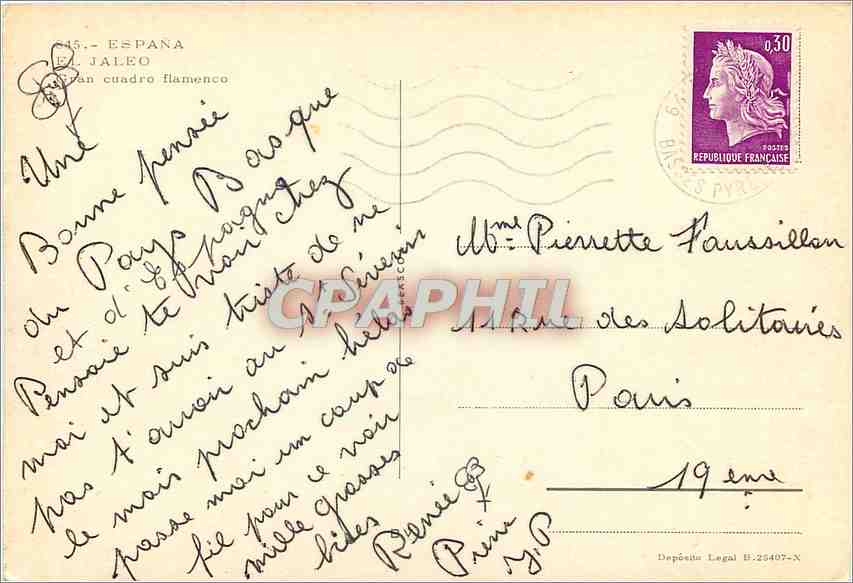 845.- ESPAÑA
EL JALEO
Gran cuadro flamenco
Une
Bonne pensée
du Pays Basque
et d'Espagne
Pensaie te voir chez
moi et suis triste de ne
pas t'avoir au St Séverin
le mois prochain hélas
passe moi un coup de
fil pour ce voir
mille grosses
bises
Renée
Pierre
J.P
0,30
POSTES
REPUBLIQUE FRANÇAISE
BASSES PYR
CPAPHIL
Mme Pierrette Faussillon
11 Rue des Solitaires
Paris
19 ème
Depósito Legal B.25407-X